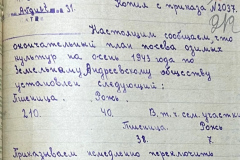 "Август" 31. Копия с приказа № 2037.
Настоящим сообщаем, что
окончательный план посева озимых
культур на осень 1943 года по
Земельному Андреевскому обществу
установлен следующий:
Пшеница. Рожь. В т. ч. сем. участки
210. 40. Пшеница Рожь
38. 7.
Приказываем немедленно переключить